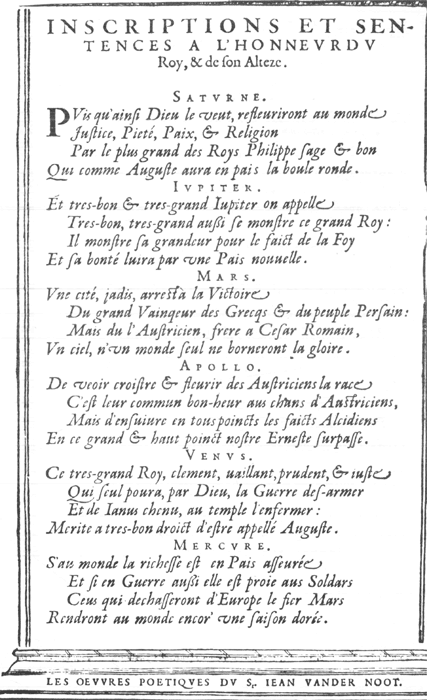 INSCRIPTIONS ET SEN-
TENCES A L'HONNEVR DV
Roy, & de ſon Alteze.
SATVRNE.
PVis qu'ainſi Dieu le veut, refleuriront au monde
Juſtice, Pieté, Paix, & Religion
Par le plus grand des Roys Philippe ſage & bon
Qui comme Auguſte aura en pais la boule ronde.
IVPITER.
Et tres-bon & tres-grand Iupiter on appelle
Tres-bon, tres-grand auſſi ſe monſtre ce grand Roy:
Il monſtre ſa grandeur pour le faict de la Foy
Et ſa bonté luira par vne Pais nouuelle.
MARS.
Vne cité, jadis, arreſta la Victoire
Du grand Vainqeur des Grecqs & du peuple Perſain:
Mais du l'Auſtricien, frere a Ceſar Romain,
Vn ciel, n'vn monde ſeul ne borneront la gloire.
APOLLO.
De veoir croiſtre & fleurir des Auſtriciens la race
C'eſt leur commun bon-heur aus chans d'Auſtriciens,
Mais d'enſuiure en tous poincts les faicts Alcidiens
En ce grand & haut poinct noſtre Erneſte ſurpaſſe.
VENVS.
Ce tres-grand Roy, clement, vaillant, prudent, & iuſte
Qui ſeul poura, par Dieu, la Guerre deſ-armer
Et de Ianus chenu, au temple l'enfermer:
Merite a tres-bon droict d'eſtre appellé Auguſte.
MERCVRE.
S'au monde la richeſſe eſt en Pais aſſeurée
Et ſi en Guerre auſſi elle eſt proie aus Soldars
Ceus qui dechaſſeront d'Europe le fier Mars
Rendront au monde encor' vne ſaiſon dorée.
LES OEVVRES POETIQVES DV S. IEAN VANDER NOOT.